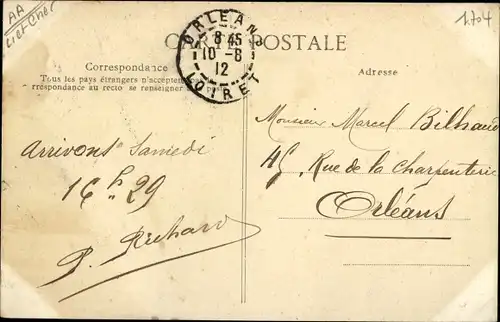 AA
Loir et Cher
1704
CARTE POSTALE
ORLEANS
8 45
10 -6
12
LOIRET
Correspondance
Tous les pays étrangers n'acceptent
rrespondance au recto se renseigner
Adresse
Arrivons Samedi
16 h 29
P. Richard
Monsieur Marcel Bilhaud
45, Rue de la Charpenterie
Orléans